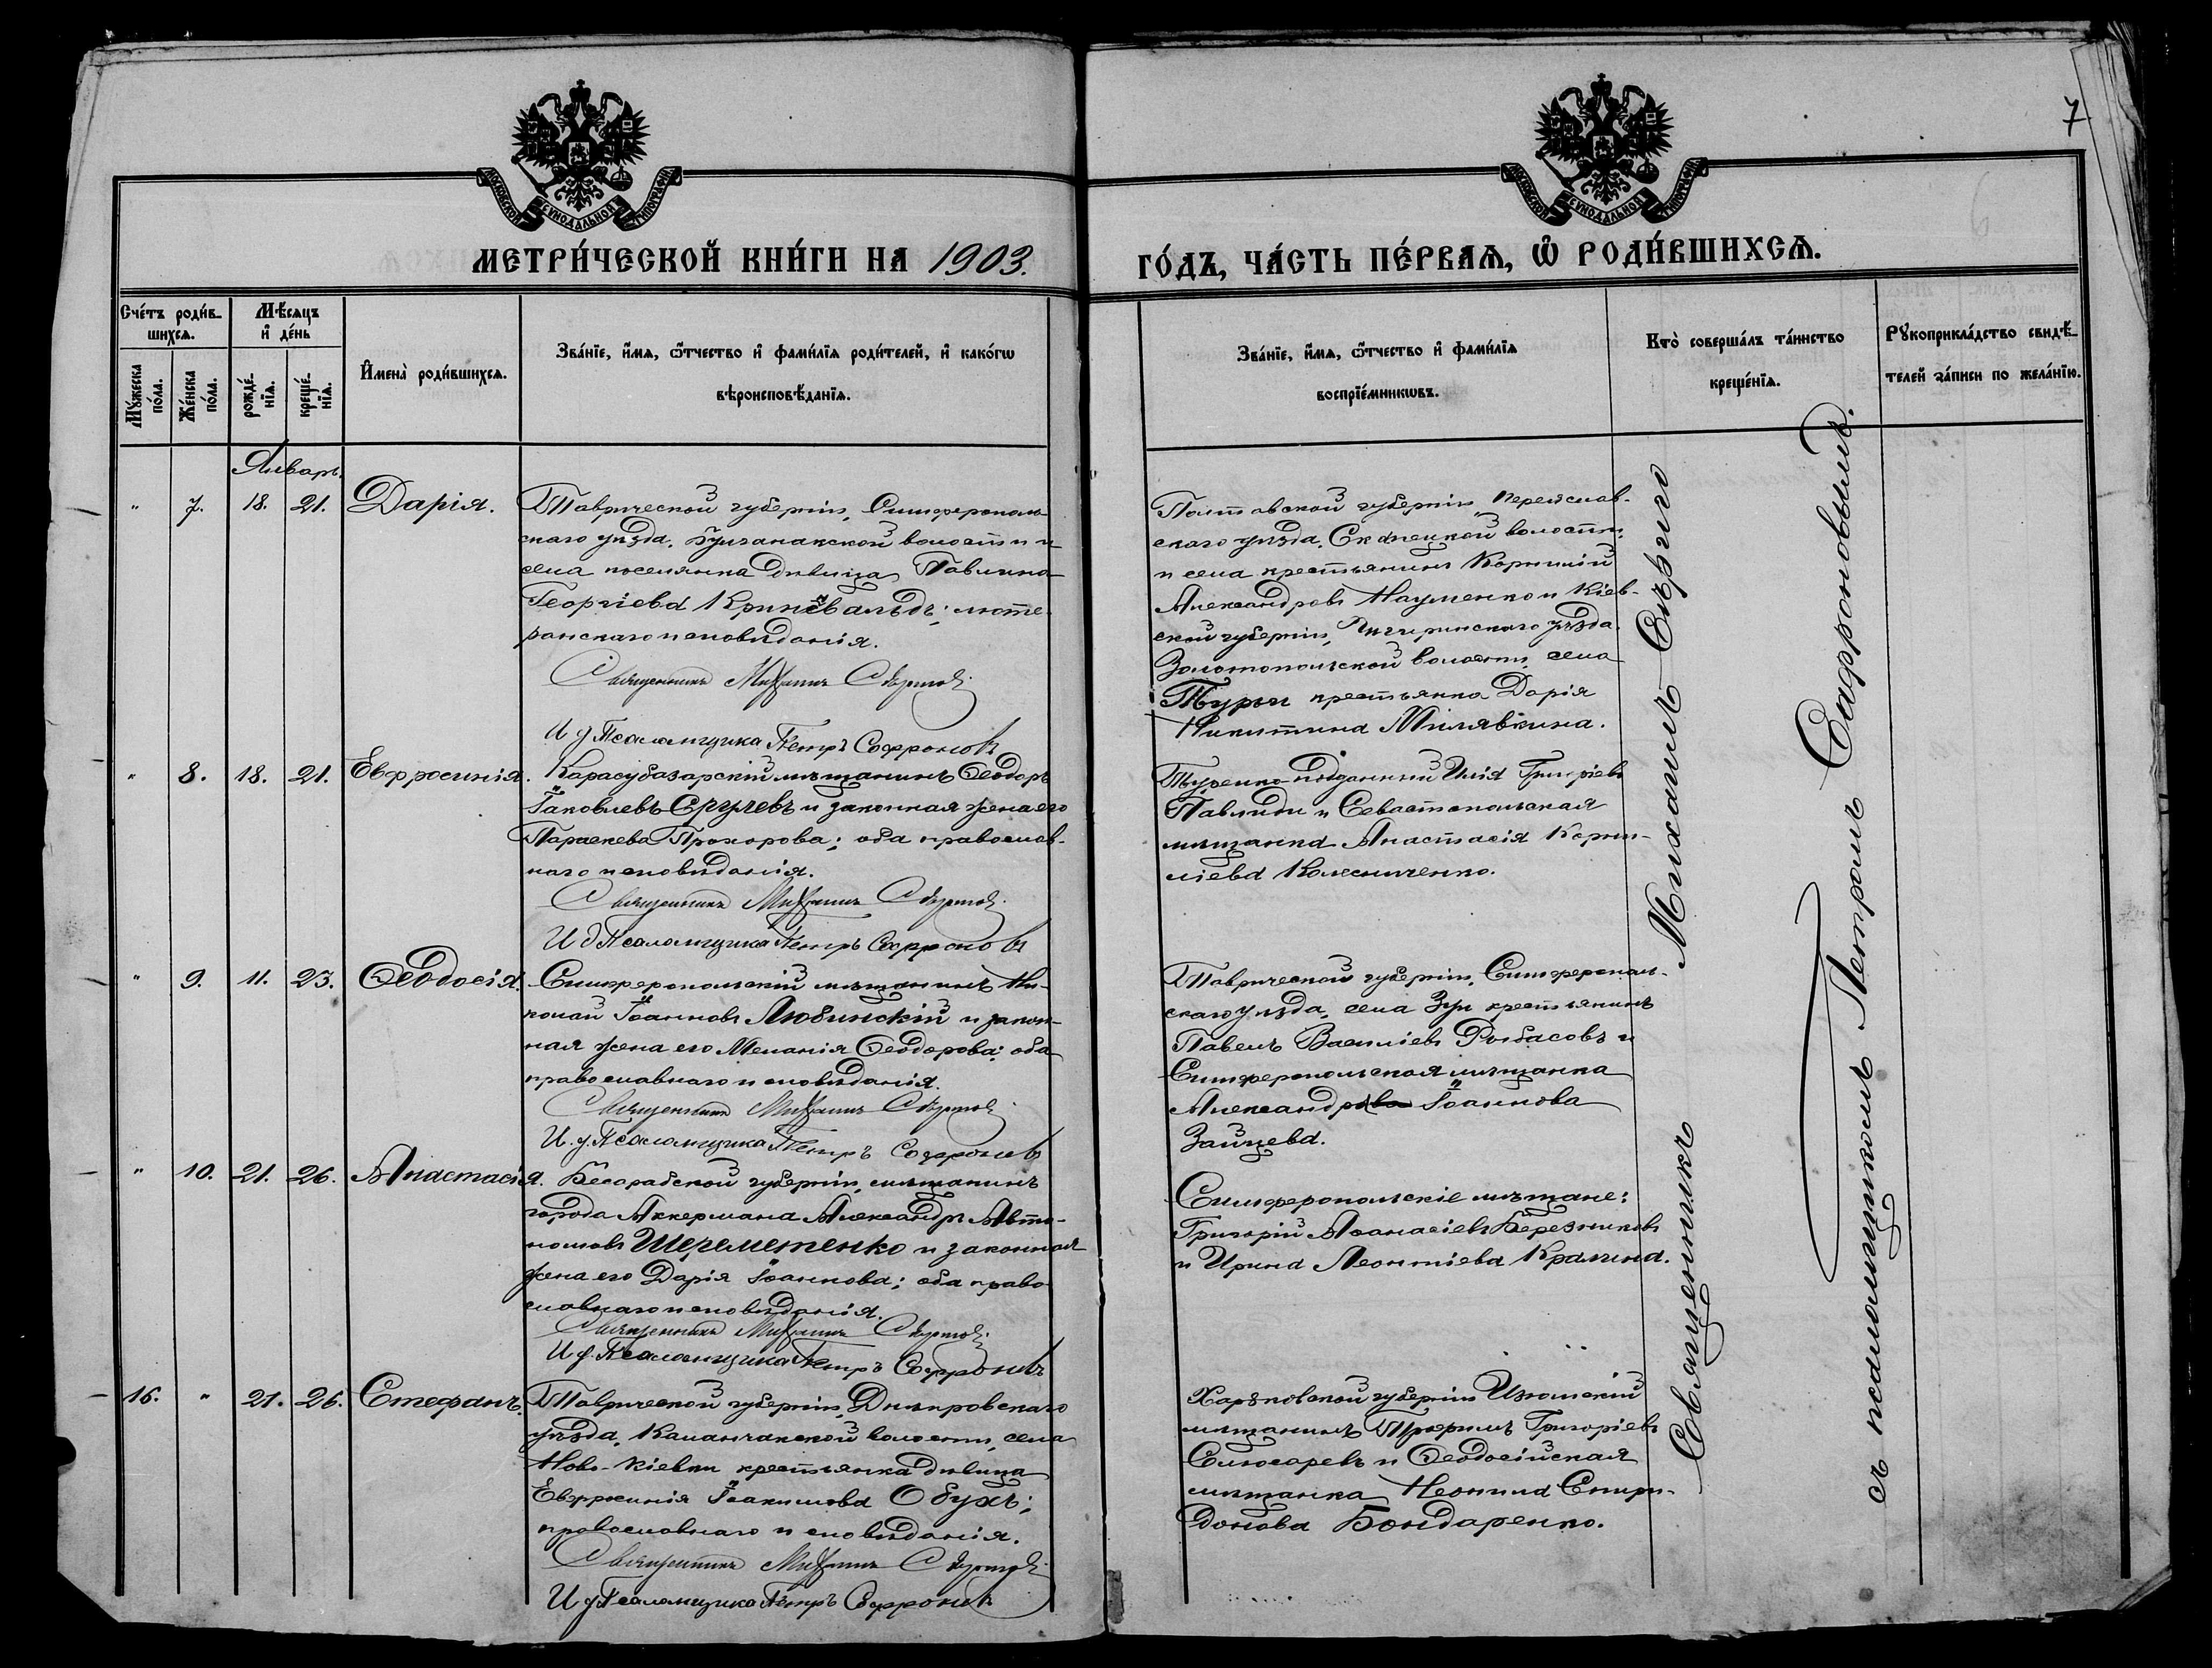 7
МОСКОВСКОЙ СѴНОДАЛЬНОЙ ТИПОГРАФІИ
МОСКОВСКОЙ СѴНОДАЛЬНОЙ ТИПОГРАФІИ
МЕТРИ́ЧЕСКОЙ КНИ́ГИ НА 1903.
ГО́ДЪ, ЧА́СТЬ ПЕ́РВАѦ, Ѿ РОДИ́ВШИХСѦ.
Сче́тъ роди́в-
шихсѧ.
Мꙋ́жеска по́ла.
Же́нска по́ла.
Мѣ́сѧцъ
и҆ де́нь
рожде́-
нїѧ.
креще́-
нїѧ.
И҆мена̀ роди́вшихсѧ.
Зва́нїе, и҆́мѧ, ѻ҆́тчество и҆ фамі́лїѧ роди́телей, и҆ како́гѡ
вѣроисповѣ́данїѧ.
Зва́нїе, и҆́мѧ, ѻ҆́тчество и҆ фамі́лїѧ
воспрїе́мникѡвъ.
Кто̀ соверша́лъ та́инство
креще́нїѧ.
Рꙋкоприкла́дство свидѣ́-
телей за́писи по жела́нїю.
Январь.
" 7. 18. 21. Дарія.
Таврической губерніи, Симферополь-
скаго уѣзда, Булганакской волости и
села поселянка дѣвица Павлина
Георгіева Кринѣвальдъ; люте-
ранскаго исповѣданія.
Священникъ Михаилъ
И д Псаломщика Петръ Софроновъ
Полтавской губерніи, Переяслав-
скаго уѣзда,
и села крестьянинъ Корнилій
Александровъ Науменко и Кіев-
ской губерніи, Чигиринскаго уѣзда,
Златопольской волости, села
Турьи крестьянка Дарія
Никитина Милявкина.
" 8. 18. 21. Евфросинія.
Карасубазарскій мѣщанинъ Ѳеодоръ
Іаковлевъ Сргулевъ и законная жена его
Параскева Прохорова; оба православ-
наго исповѣданія.
Священникъ Михаилъ
И д Псаломщика Петръ Софроновъ
Турецко-подданный Илія Григоріевъ
Павлиди и Севастопольская
мѣщанка Анастасія Корни-
ліева Колесниченко.
" 9. 11. 23. Ѳеодосія.
Симферопольскій мѣщанинъ Ни-
колай Іоанновъ Любинскій и закон-
ная жена его Меланія Ѳеодорова; оба
православнаго исповѣданія.
Священникъ Михаилъ
И. д. Псаломщика Петръ Софроновъ
Таврической губерніи, Симферополь-
скаго уѣзда, села Зуи крестьянинъ
Павелъ Василіевъ Рыбасовъ и
Симферопольская мѣщанка
Александра Іоаннова
Зайцева.
" 10. 21. 26. Анастасія.
Бесарабской губерніи, мѣщанинъ
города Аккермана Александръ Авто-
номовъ Шереметенко и законная
жена его Дарія Іоаннова; оба право-
славнаго исповѣданія.
Священникъ Михаилъ
И д. Псаломщика Петръ Софроновъ
Симферопольскіе мѣщане:
Григорій Аѳанасіевъ Березниковъ
и Ирина Леонтіева Кралина.
16. " 21. 26. Стефанъ.
Таврической губерніи, Днѣпровскаго
уѣзда, Каланчакской волости, села
Ново-Кіевки крестьянка дѣвица
Евфросинія Іоакимова Обухъ;
православнаго исповѣданія.
Священникъ Михаилъ
И д Псаломщика Петръ Софроновъ
Харьковской губерніи Изюмскій
мѣщанинъ Григоріевъ
Слюсаревъ и Ѳеодосійская
мѣщанка Неонила Спири-
донова Бондаренко.
Священникъ Михаилъ
съ псаломщикомъ Петромъ Сафроновымъ.